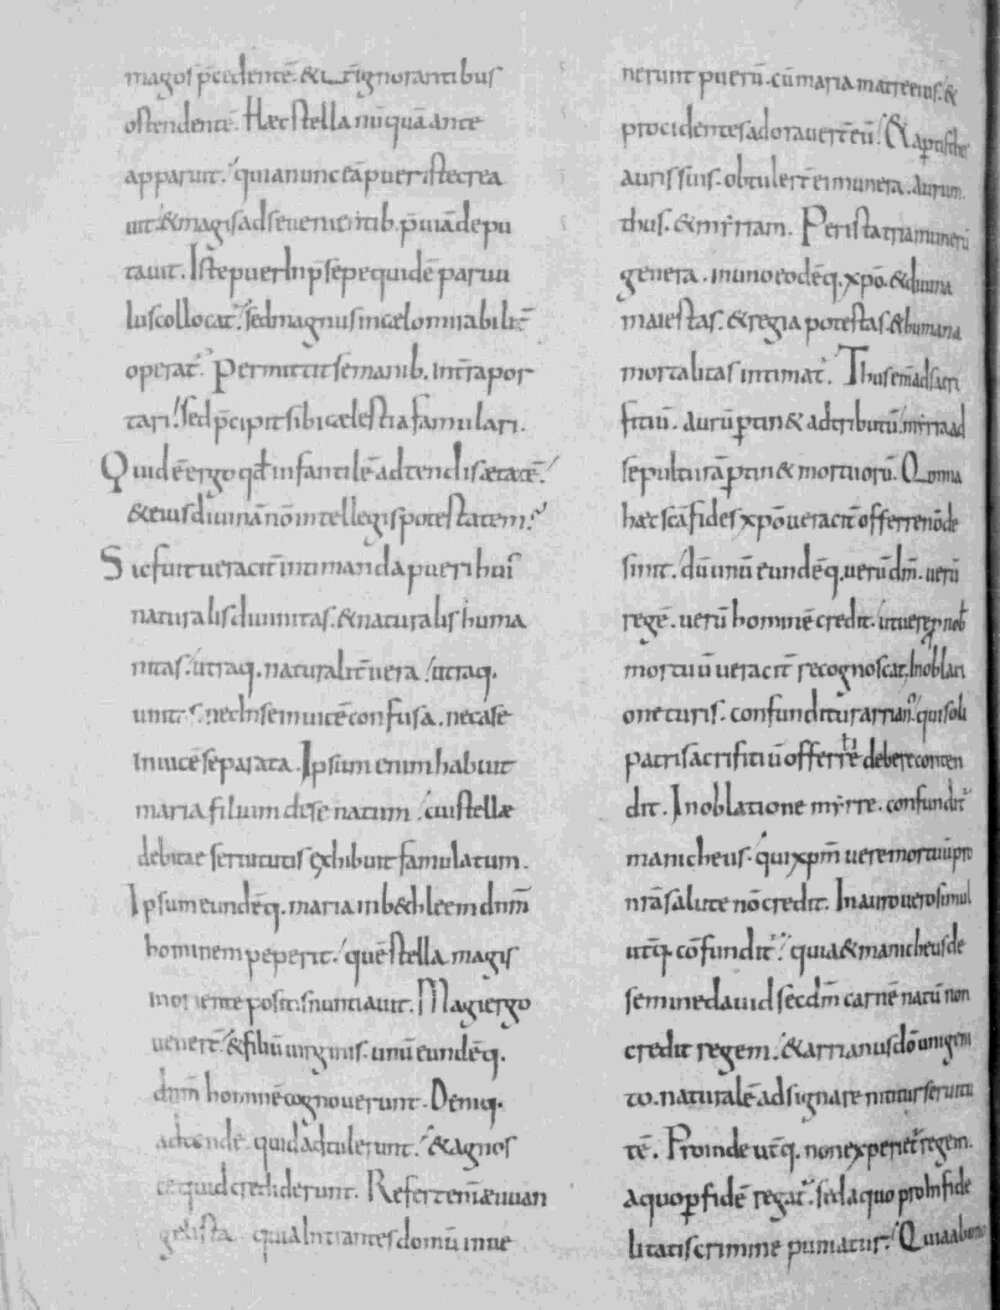 magos p̄cedentē. & it̄ ignorantibus
ostendentē. Haec stella nūquā ante
apparuit. quia nunc eā puer iste crea
uit. & magis ad se uenientib. p̄uiā depu
tauit. Iste puer In p̄sepe quidē paruu
lus collocat̄. sed magnus in caelo mirabilit̄
operat̄. Permittit se manib. Int̄ra por
tari. sed p̄cipit sibi caelestia famulari.
Quid ē ergo qđ infantilē adtendis ætatē.
& eius diuinā nō intellegis potestatem.
Sic fuit ueracit̄ intimanda pueri hui᾽
naturalis diuinitas. & naturalis huma
nitas. utraq. naturalit̄ uera. utraq.
unit s. nec In semuicē confusa. nec a se
Inuicē separata. Ipsum enim habuit
maria filium de se natum. cui stellæ
debitae seruitutis exhibuit famulatum.
Ipsum eundēq. maria in b&hleem dnm̄
hominem peperit. quē stella magis
in oriente positis nuntiauit. Magi ergo
uenert̄. & filiū uirginis. unū eundēq.
dnm̄ hominē cognouerunt. Deniq.
adtende quid adtulerunt. & agnos
ce quid crediderunt. Refert enī æuuan
gelista quia Intrantes domū inue
nerunt puerū. cū maria matre eius. &
procidentes adorauert̄ eū. & aptis thes
auris suis. obtulert̄ ei munera. aurum.
thus. & mẏrram. Per ista tria munerū
genera. in uno eodēq. xp̄o. & diuina
maiestas. & regia potestas. & humana
mortalitas intimat̄. Thus enī ad sacri
fitiū. aurū ptin& ad tributū. mẏrra ad
sepulturā ptin& mortuorū. Q omnia
haec sc̄a fides xp̄o ueracit̄ offerre nō de
sinit. dū unū eundēq. uerū dm̄. uerū
regē. uerū hominē credit. ut uere p nob
mortuū ueracit̄ recognoscat. In oblati
one turis. confunditur arrian᾽. qui soli
patri sacrifitiū offerre debere conten
dit. In oblatione mẏrre. confundit̄
manicheus. qui xpm̄ uere mortuū pro
nr̄a salute nō credit. In auro uero simul
ut̄q. cōfundit̄. quia & manicheus de
semine dauid secdm̄ carnē natū non
credit regem. & arrianus dō unigeni
to. naturalē adsignare nititur seruitu
tē. Proinde ut̄q. non experiet̄ regem.
a quo p fidē regat̄. sed a quo pro Infide
litatis crimine puniatur. Quia a bono